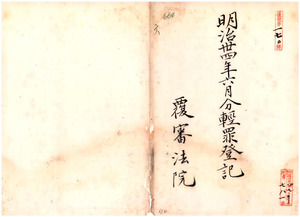 明治卅四年六月分輕罪登記
覆審法院